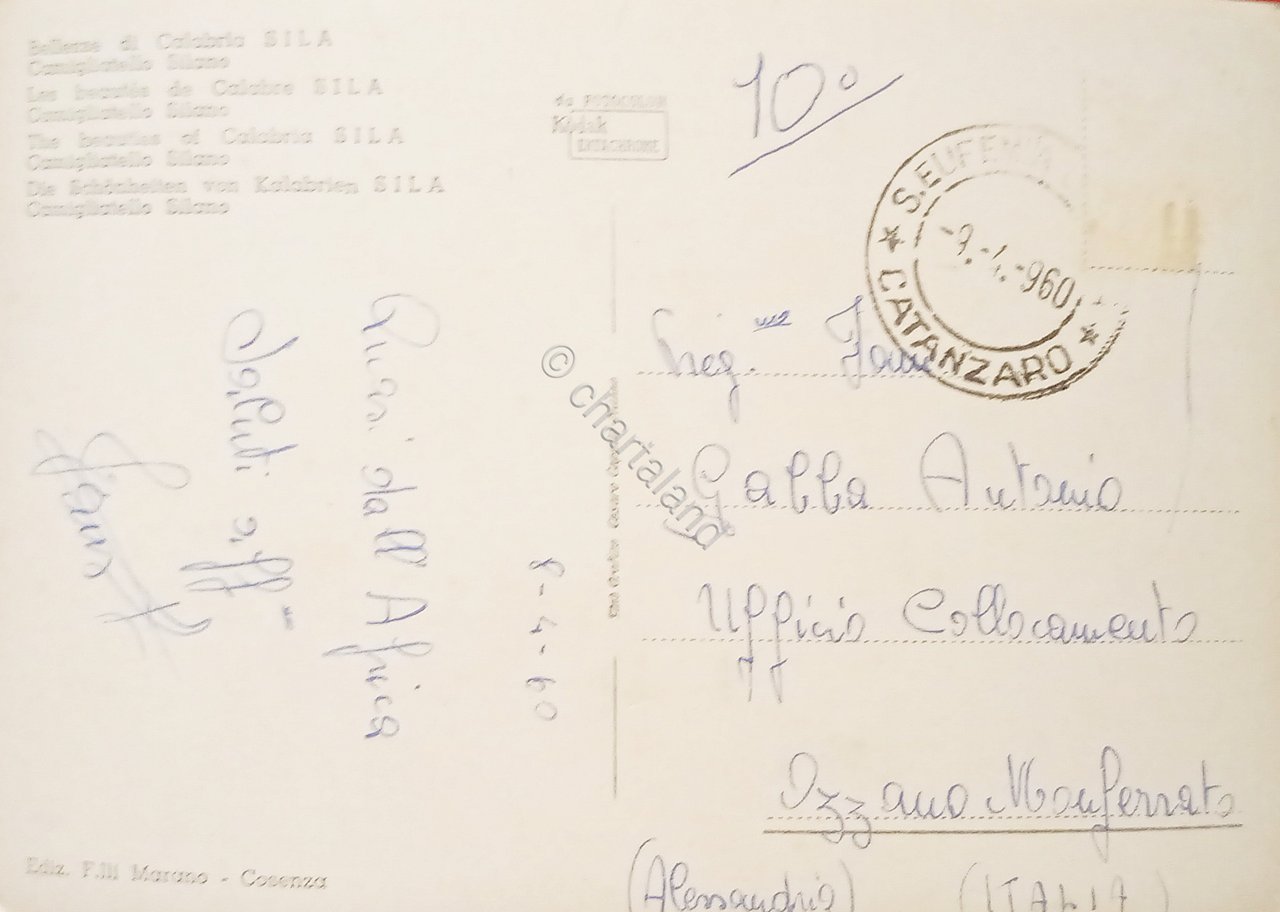 Bellezze di Calabria SILA
Camigliatello Silano
Les beautés de Calabre SILA
Camigliatello Silano
The beauties of Calabria SILA
Camigliatello Silano
Die Schönheiten von Kalabrien SILA
Camigliatello Silano
da FOTOCOLOR
Kodak
EKTACHROME
10°
S. EUFEMIA
-9.-4.-960
CATANZARO
8-4-60
Quasi dall'Africa
Saluti aff.
© chartaland
Gabba Antonio
Ufficio Collocamento
Ozzano Monferrato
(Alessandria) (ITALIA)
Ediz. F.lli Marano - Cosenza